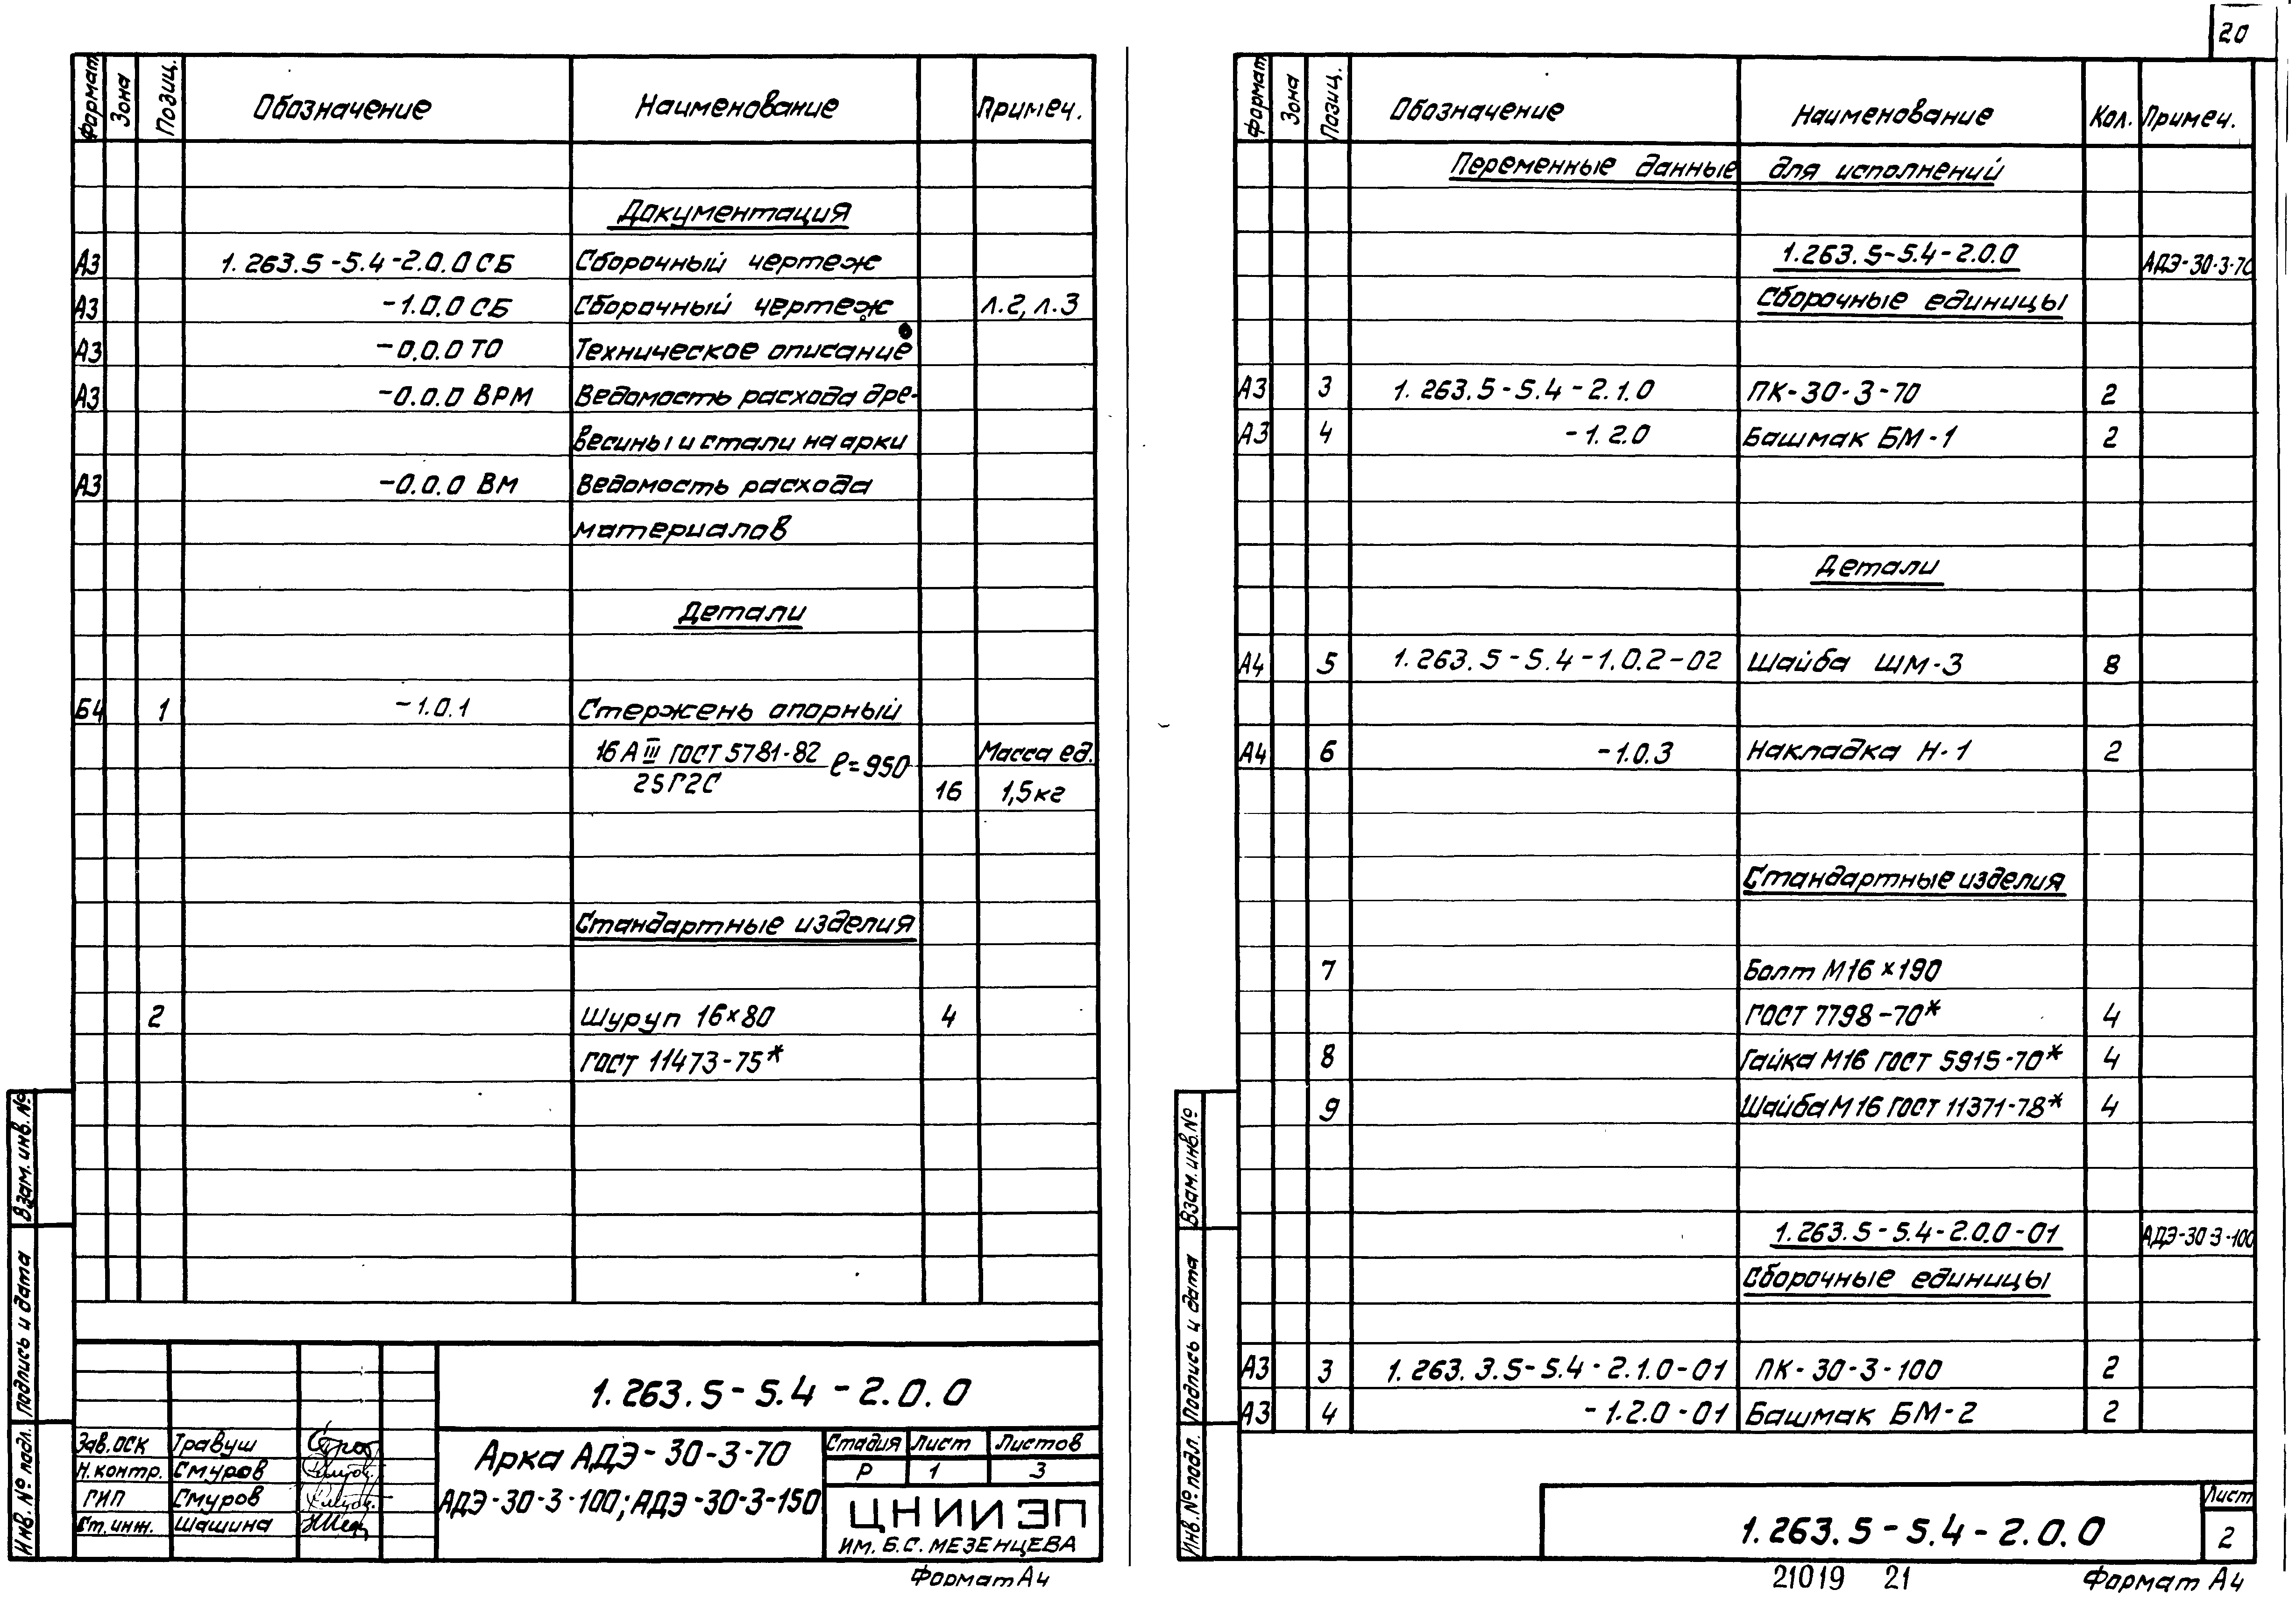 20
Формат Зона Позиц. Обозначение Наименование Примеч.
Документация
А3 1.263.5-5.4-2.0.0 СБ Сборочный чертеж
А3 -1.0.0 СБ Сборочный чертеж л.2, л.3
А3 -0.0.0 ТО Техническое описание
А3 -0.0.0 ВРМ Ведомость расхода дре-
весины и стали на арки
А3 -0.0.0 ВМ Ведомость расхода
материалов
Детали
Б4 1 -1.0.1 Стержень опорный
16 А III ГОСТ 5781-82 Масса ед.
25Г2С ℓ=950 16 1,5кг
Стандартные изделия
2 Шуруп 16×80 4
ГОСТ 11473-75*
Взам. инв. №
Подпись и дата
Инв. № подл.
1.263.5-5.4-2.0.0
Зав. ОСК Травуш
Н.контр. Смуров
ГИП Смуров
Ст. инж. Шашина
Арка АДЭ-30-3-70
АДЭ-30-3-100; АДЭ-30-3-150
Стадия Лист Листов
Р 1 3
ЦНИИЭП
ИМ. Б.С. МЕЗЕНЦЕВА
Формат А4
Формат Зона Позиц. Обозначение Наименование Кол. Примеч.
Переменные данные для исполнений
1.263.5-5.4-2.0.0 АДЭ-30-3-70
Сборочные единицы
А3 3 1.263.5-5.4-2.1.0 ПК-30-3-70 2
А3 4 -1.2.0 Башмак БМ-1 2
Детали
А4 5 1.263.5-5.4-1.0.2-02 Шайба ШМ-3 8
А4 6 -1.0.3 Накладка Н-1 2
Стандартные изделия
7 Болт М16×190
ГОСТ 7798-70* 4
8 Гайка М16 ГОСТ 5915-70* 4
9 Шайба М16 ГОСТ 11371-78* 4
1.263.5-5.4-2.0.0-01 АДЭ-30-3-100
Сборочные единицы
А3 3 1.263.3.5-5.4-2.1.0-01 ПК-30-3-100 2
А3 4 -1.2.0-01 Башмак БМ-2 2
Взам. инв. №
Подпись и дата
Инв. № подл.
1.263.5-5.4-2.0.0
Лист
2
21019 21
Формат А4